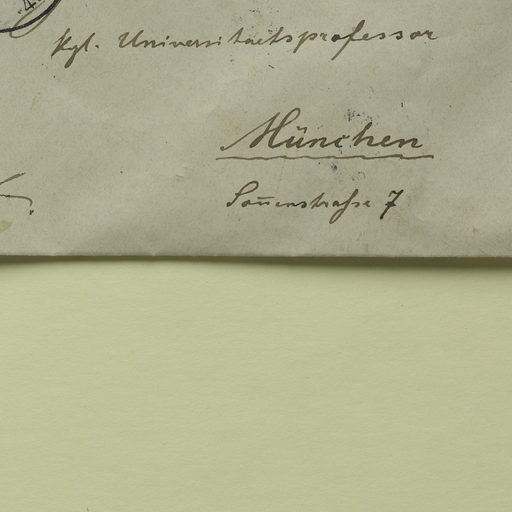 Kgl. Universitaetsprofessor
München
Son̄enstraſse 7